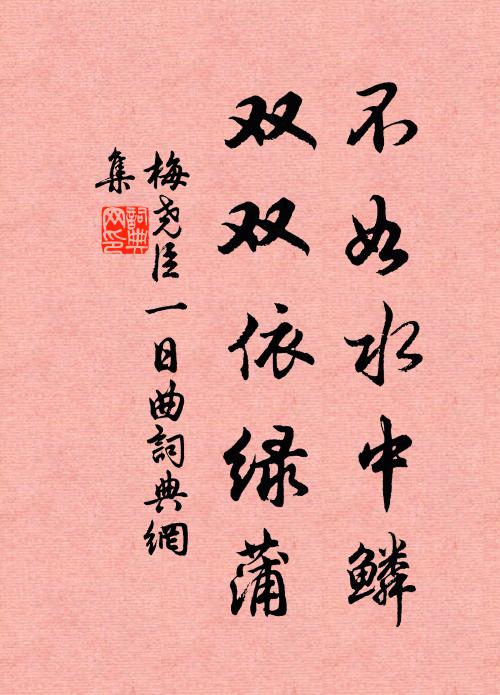 不如水中鳞
双双依绿蒲
梅尧臣一日曲詞典網
集
詞典
网印